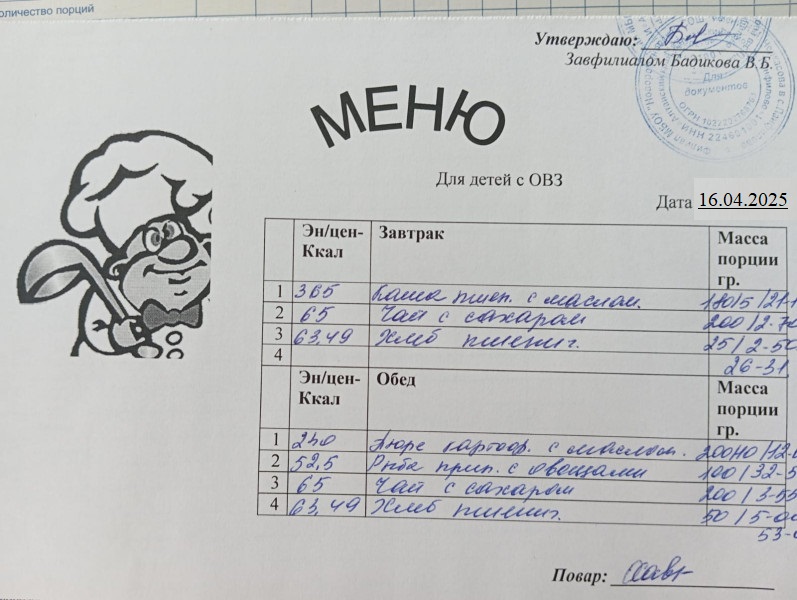 количество порций
Утверждаю:
Завфилиалом Бадикова В.Б.
Для
документов
МЕНЮ
Для детей с ОВЗ
Дата 16.04.2025
Эн/цен-Ккал Завтрак Масса порции гр.
1 365 Каша пшен. с маслом. 180/5/21-1
2 65 Чай с сахаром 200/2-70
3 63,49 Хлеб пшенич. 25/2-50
4 26-31
Эн/цен-Ккал Обед Масса порции гр.
1 240 Пюре картоф. с маслом. 200/10/12-
2 52,5 Рыба прип. с овощами 100/32-5
3 65 Чай с сахаром 200/3-55
4 63,49 Хлеб пшенич. 50/5-00
53-
Повар: